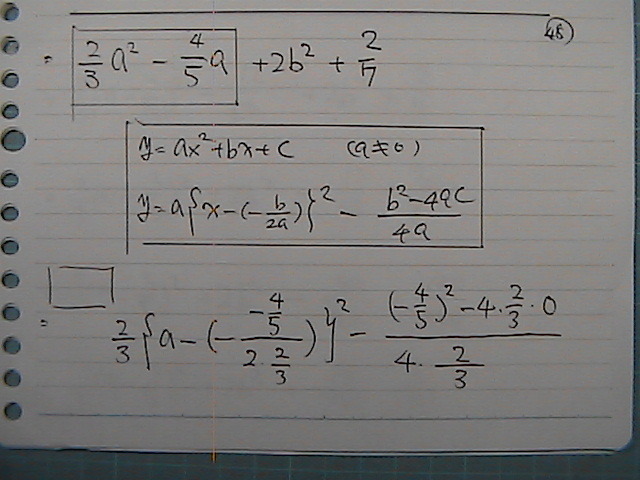 48
= 2/3 a² - 4/5 a + 2b² + 2/7
y = ax² + bx + c (a ≠ 0)
y = a{x - (-b/2a)}² - (b² - 4ac)/4a
= 2/3 {a - (- (-4/5)/(2·2/3))}² - ((-4/5)² - 4·2/3·0)/(4·2/3)